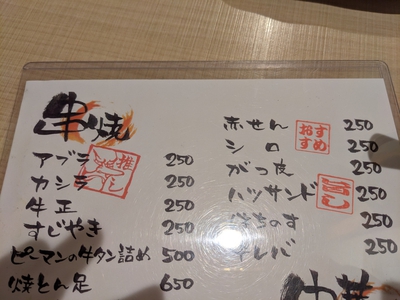 串焼
アブラ 250
カシラ 250
牛正 250
すじやき 250
ピーマンの牛タン詰め 500
焼とん足 650
推し
赤せん 250
おすすめ
シロ 250
がつ皮 250
ハツサンド 250
旨し
はちのす 250
レバ 250
中華